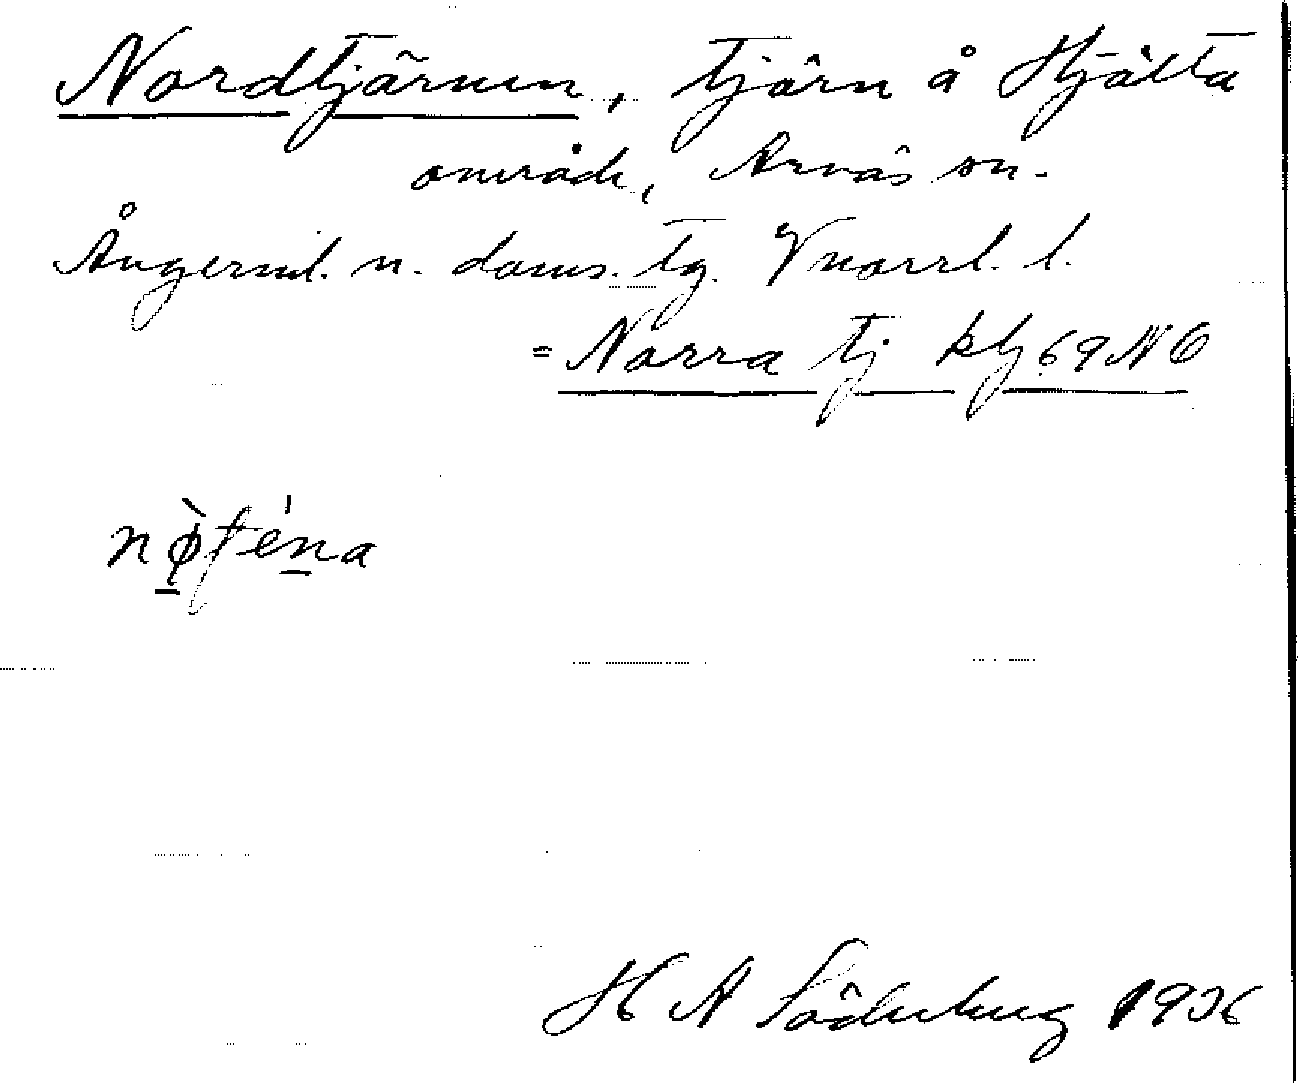 Nordtjärnen, tjärn å Hjälta
område, Arnäs sn.
Ångerml. n. doms. tg. Vnorrl. l.
= Norra tj kbl 69 NO
H A Söderberg 1936